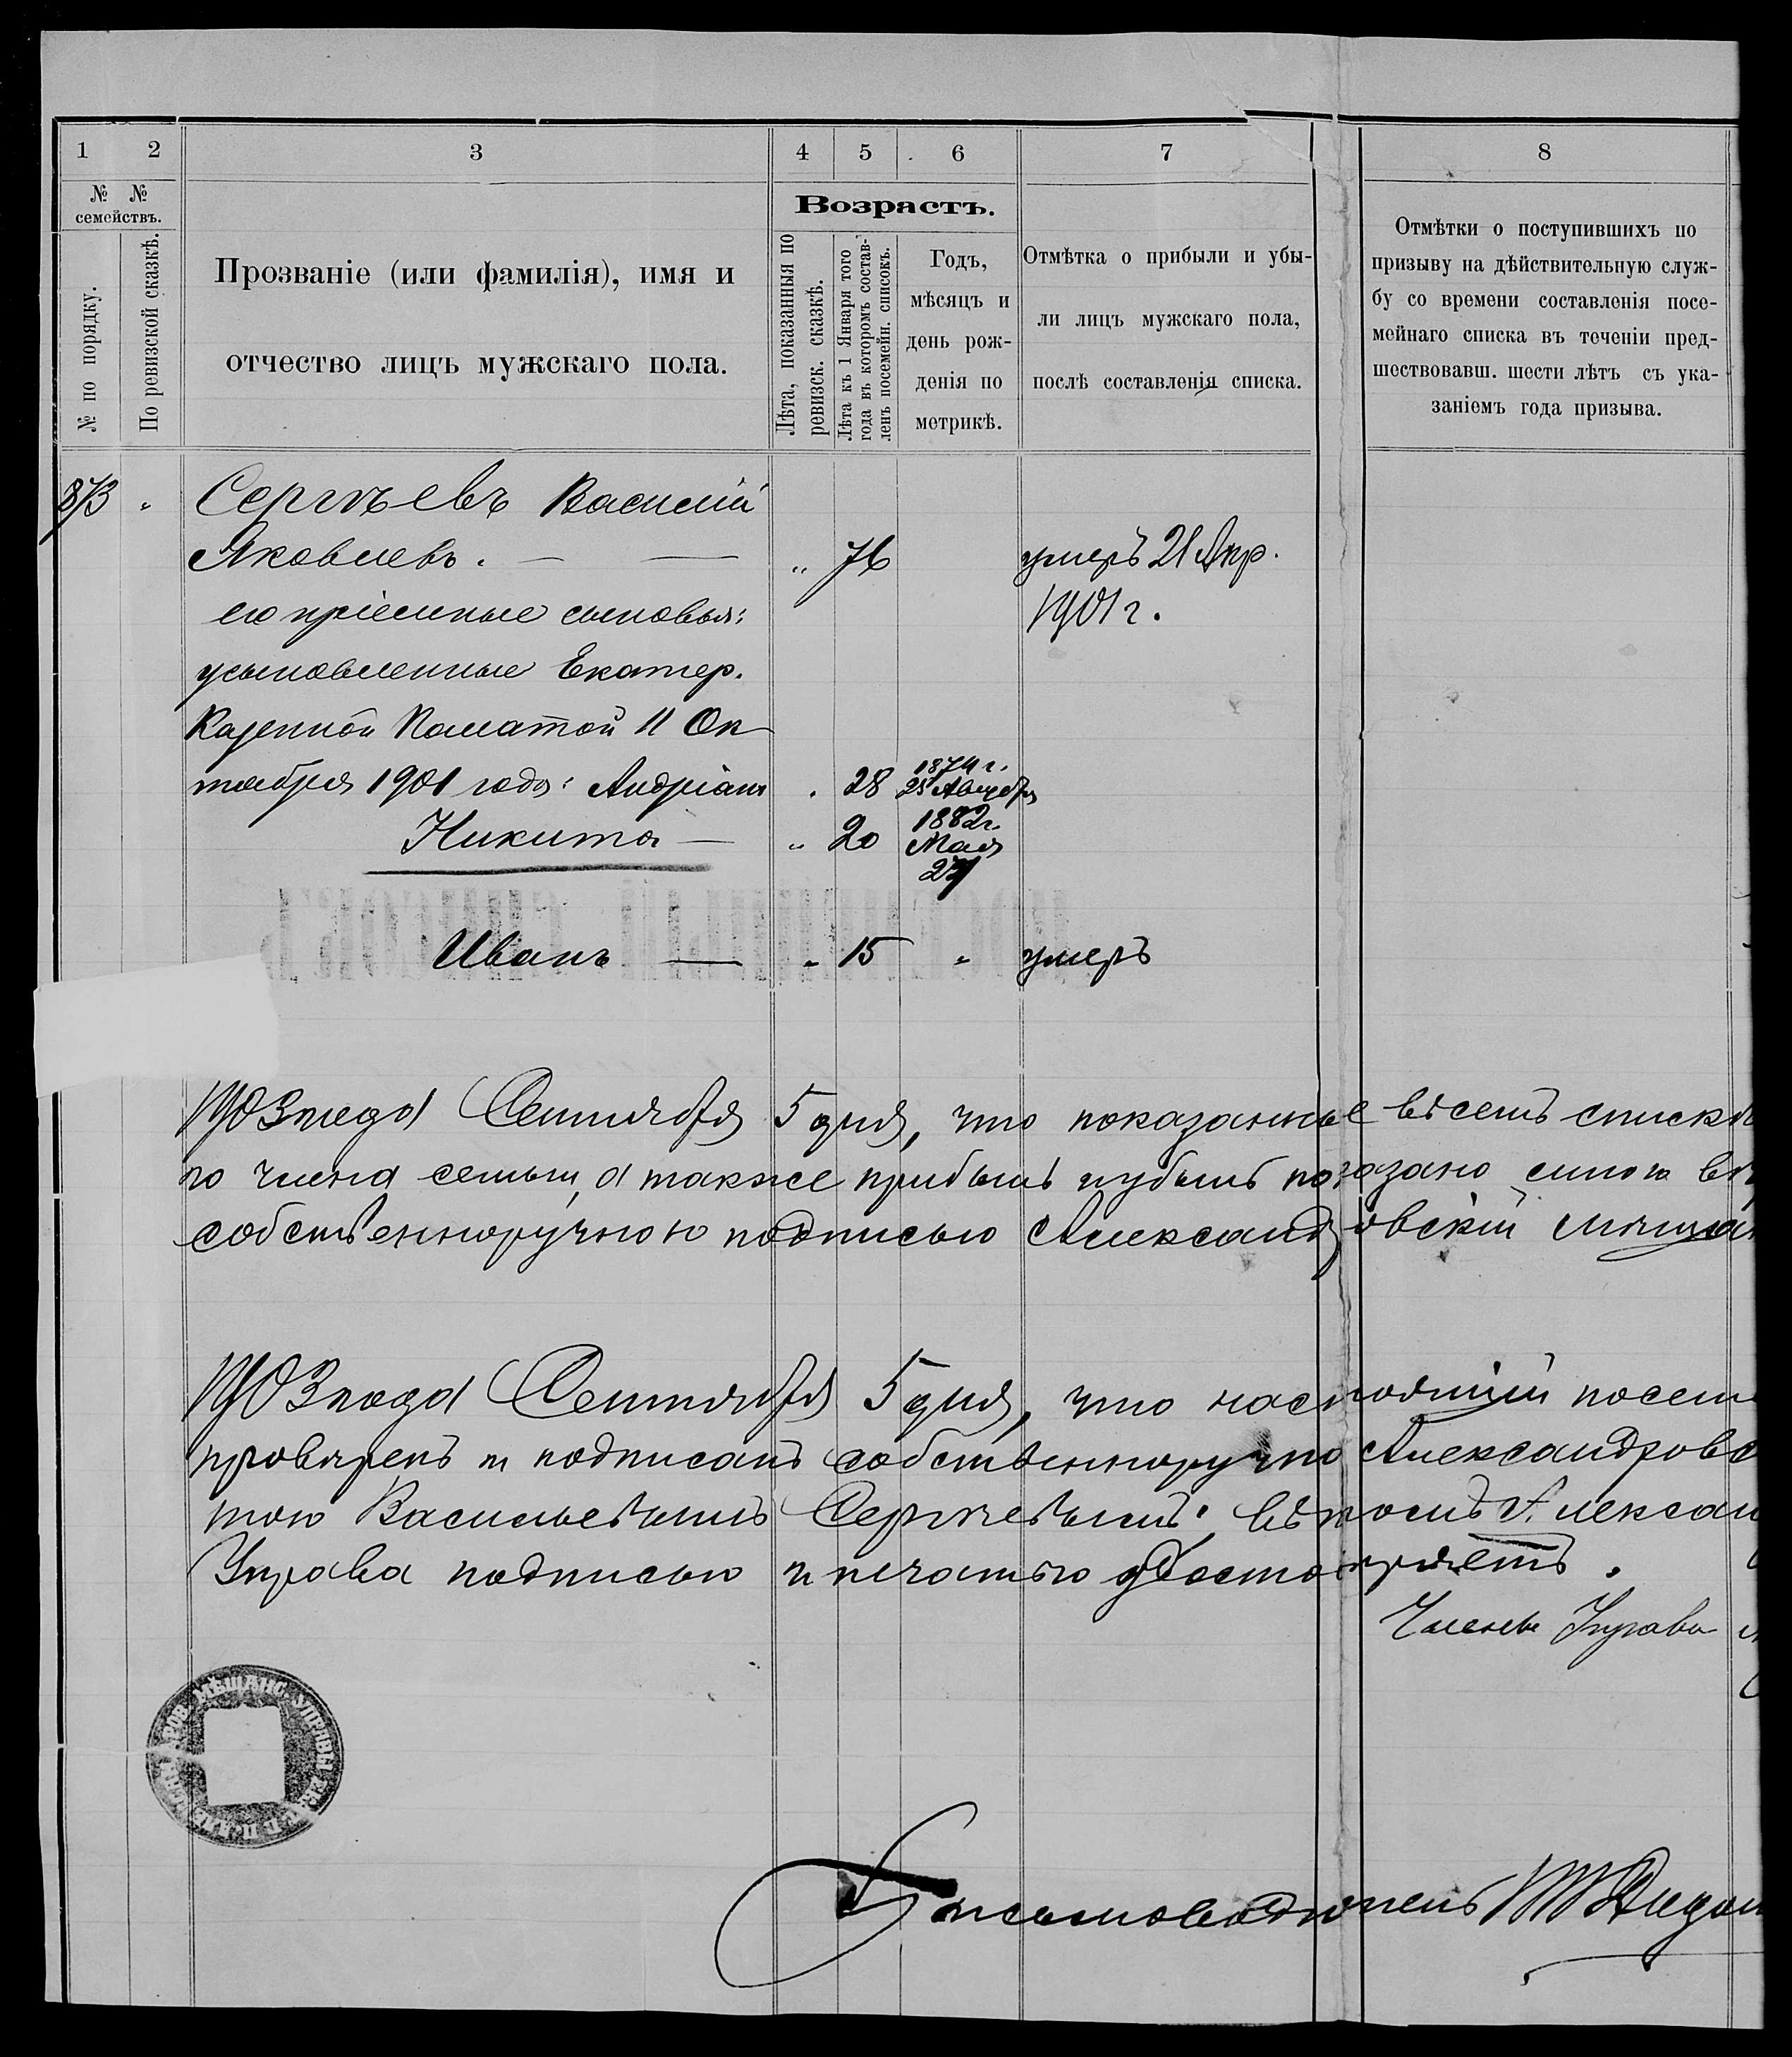 1 2 3 4 5 6 7 8
№ № семействъ.
№ по порядку.
По ревизской сказкѣ.
Прозваніе (или фамилія), имя и
отчество лицъ мужскаго пола.
Возрастъ.
Лѣта, показанныя по
ревизск. сказкѣ.
Лѣта къ 1 Января того
года въ которомъ состав-
ленъ посемейн. списокъ.
Годъ,
мѣсяцъ и
день рож-
денія по
метрикѣ.
Отмѣтка о прибыли и убы-
ли лицъ мужскаго пола,
послѣ составленія списка.
Отмѣтки о поступившихъ по
призыву на дѣйствительную служ-
бу со времени составленія посе-
мейнаго списка въ теченіи пред-
шествовавш. шести лѣтъ съ ука-
заніемъ года призыва.
873 Сергѣевъ Василій
Яковлевъ. — — „ 76 умеръ 21 Апр.
его пріемные сыновья: 1901 г.
усыновленные Екатер.
Казенной Палатой 11 Ок
тября 1901 года: Андріанъ 28 1874 г. 25 Августа
Никита — „ 20 1882 г. Мая 27
Иванъ — „ 15 „ умеръ
1903 года Сентября 5 дня, что показанные въ семъ спискѣ
го члена семьи, а также прибыль и убыль показано мною вѣ
собственноручною подписью Александровскій мѣща
1903 года Сентября 5 дня, что настоящій посем
провѣренъ и подписанъ собственноручно Александровс
тою Васильевымъ Сергѣевымъ; въ томъ Алексан
Управа подписью и печатью удостовѣряетъ.
Члены Управы
МѢЩАНС. УПРАВЫ
Письмоводитель